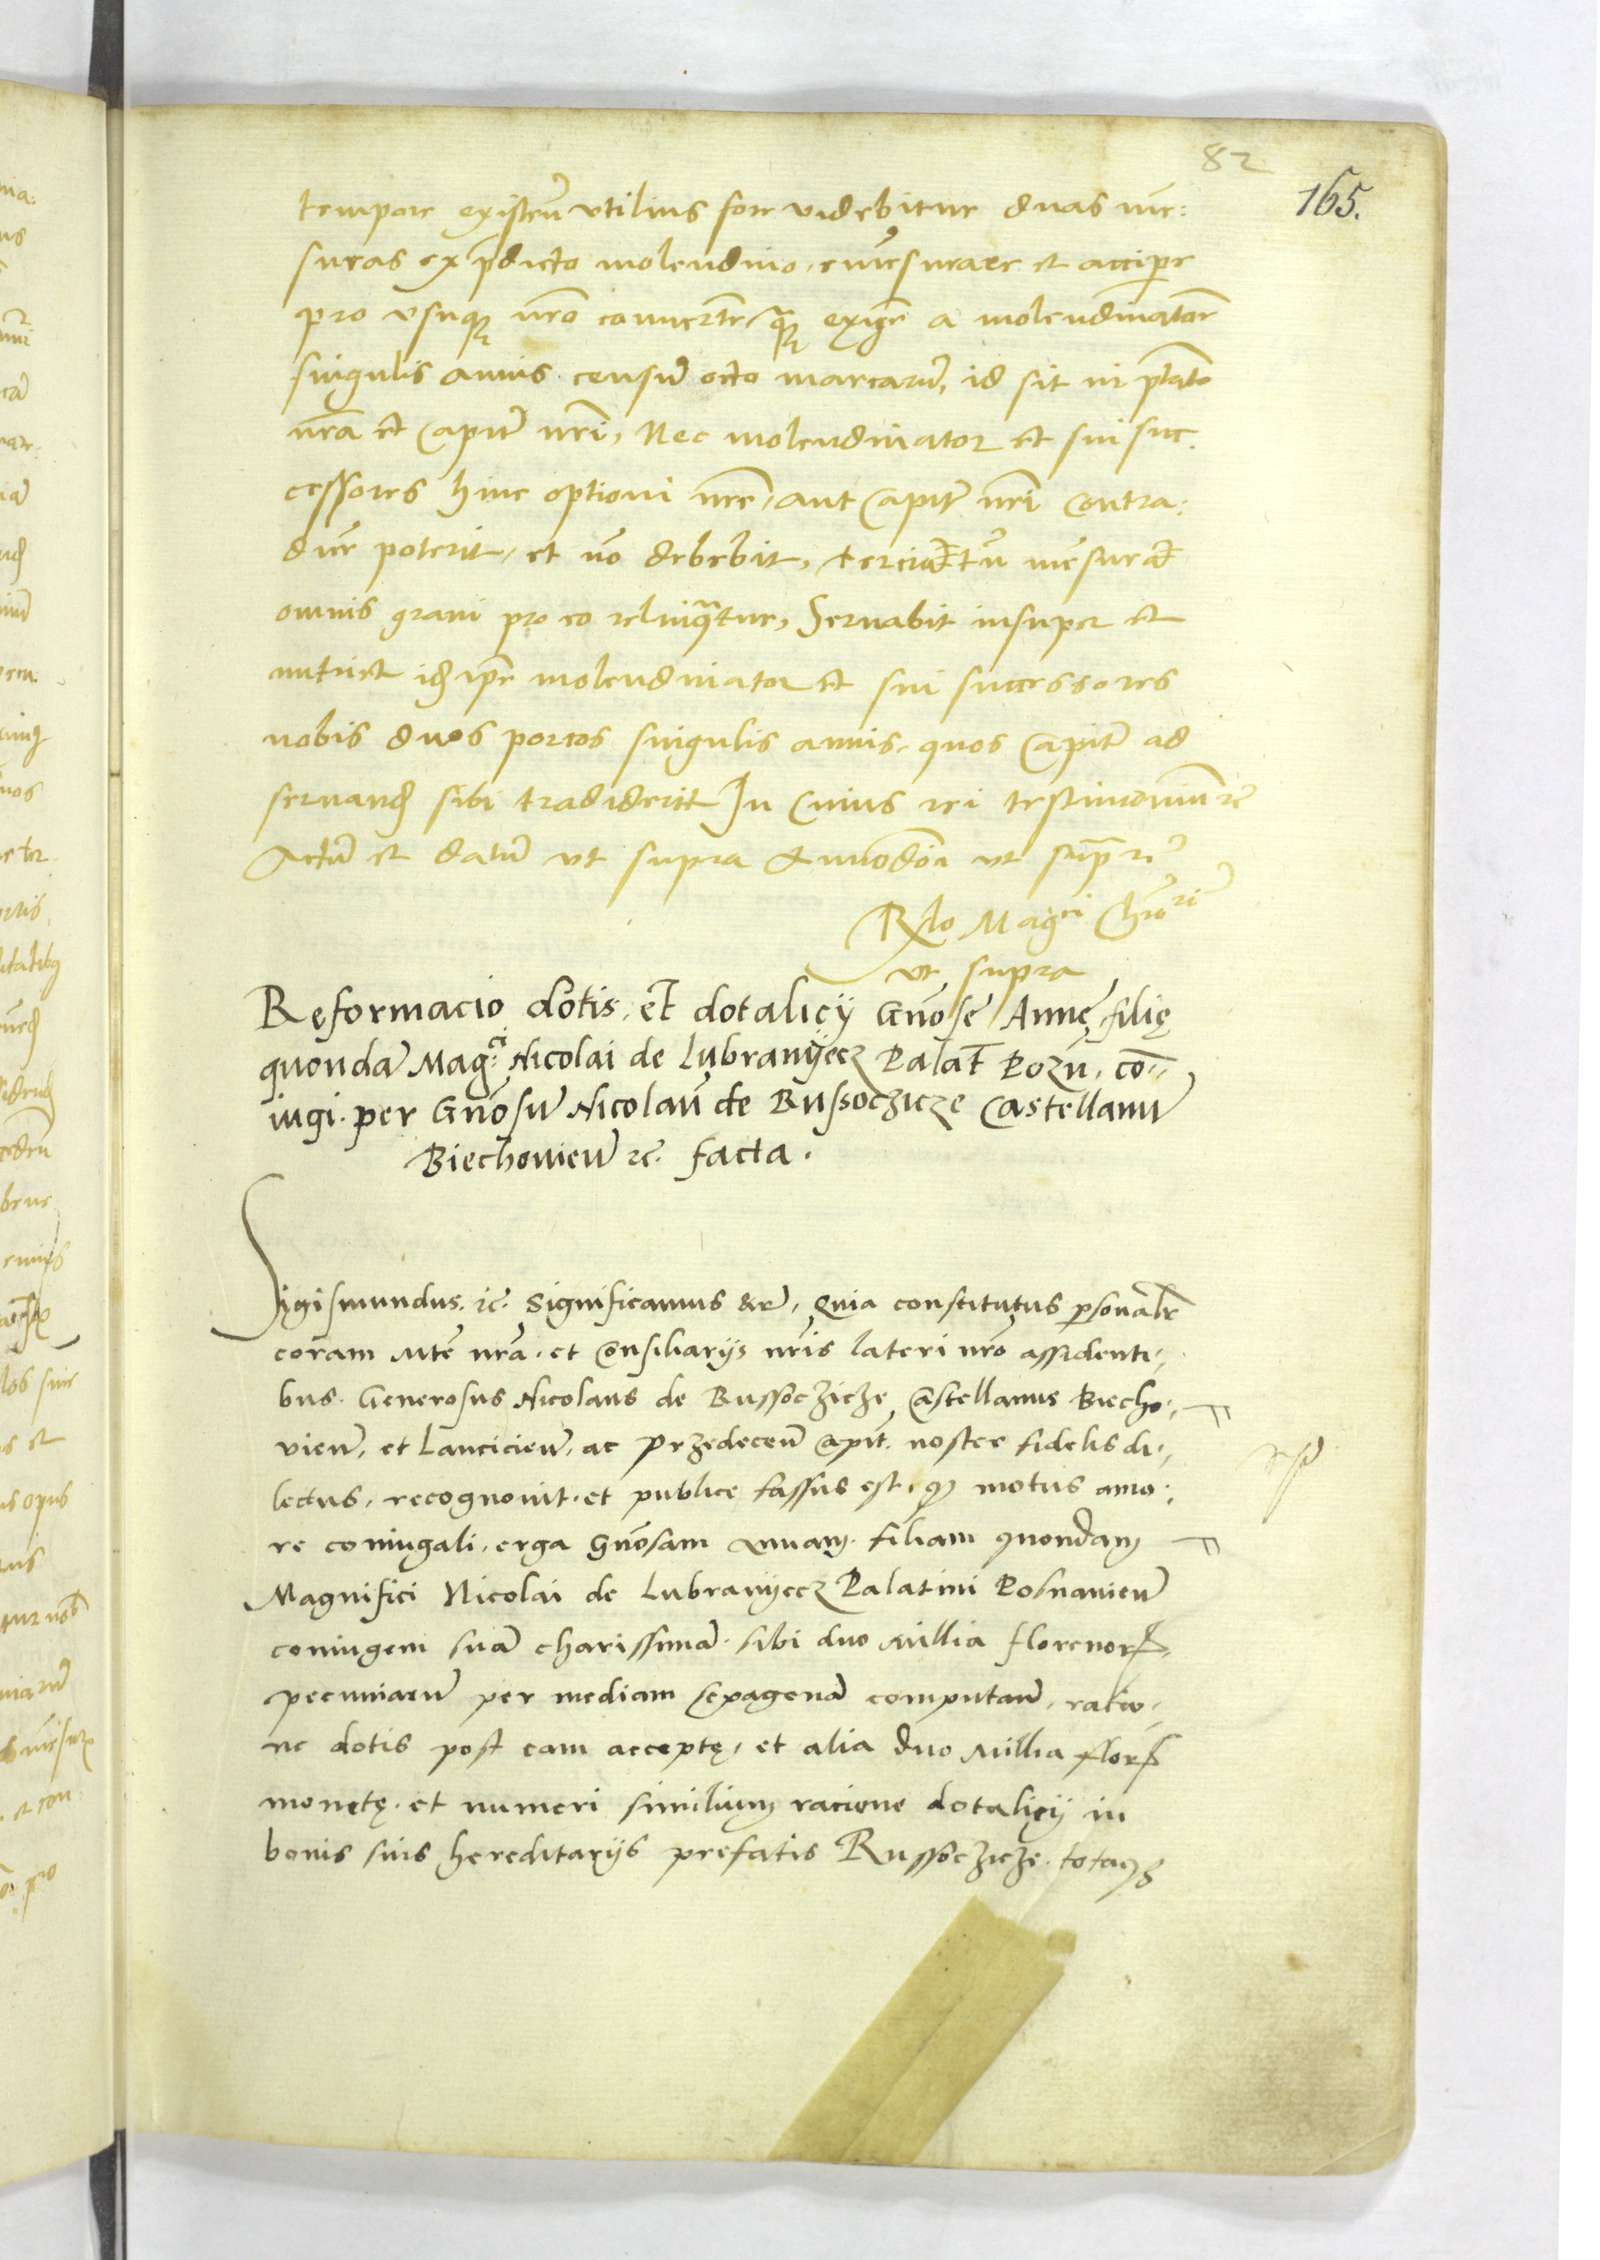 82
165.
tempore existen̄ utilius fore videbitur duas me:
suras ex p̄dicto molendino, emesurare et accipe
pro usuq; nr̄o convertere, exige a molendinatore
singulis annis censū octo marcarū, id sit in ptāte
nrā et Capitī nrī, Nec molendinator et sui suc:
cessores huic optioni nrē, aut Capitī nrī Contra:
dicē poterit, et nō debebit, tercia tn̄ mēsura
omnis grani pro eo relinqtur, Servabit insuper et
nutriet idē ipē molendinator et sui successores
nobis duos porcos singulis annis, quos Capitī ad
servand̄ sibi tradiderit In Cuius rei testimoniū rc̄
Actū et datū ut supra ut supr̄
Rlo Magci
ut supra
Reformacio dotis, et dotalicij Gnōse Annę filię
quondā Mag:ci Nicolai de Lubranijecz Palat̄ Pozn̄, co=
iugi, per Gnōsū Nicolaū de Russoczicze Castellanū
Biechovien̄ rc̄. facta.
Sigismundus. rc̄. Significamus &c̄, Quia constitutus personalr̄
coram Mte nrā, et Consiliarijs nr̄is lateri nr̄o assidenti:
bus. Generosus Nicolaus de Russoczicze Castellanus Biecho:
vien̄, et Lancicien̄, ac Przedecen̄ Capit̄. noster fidelis di:
lectus, recognovit, et publice fassus est, q; motus amo:
re coniugali, erga Gnōsam Annam, filiam quondam
Magnifici Nicolai de Lubranijecz Palatini Posnanien̄
coniugem suā charissimā, sibi duo Millia florenor̄,
pecuniarū per mediam sexagenā computan̄, ratio:
ne dotis post eam acceptę, et alia duo Millia flor̄
monetę, et numeri similium racione dotalicij in
bonis suis hereditarijs prefatis Russoczicze, totaq;